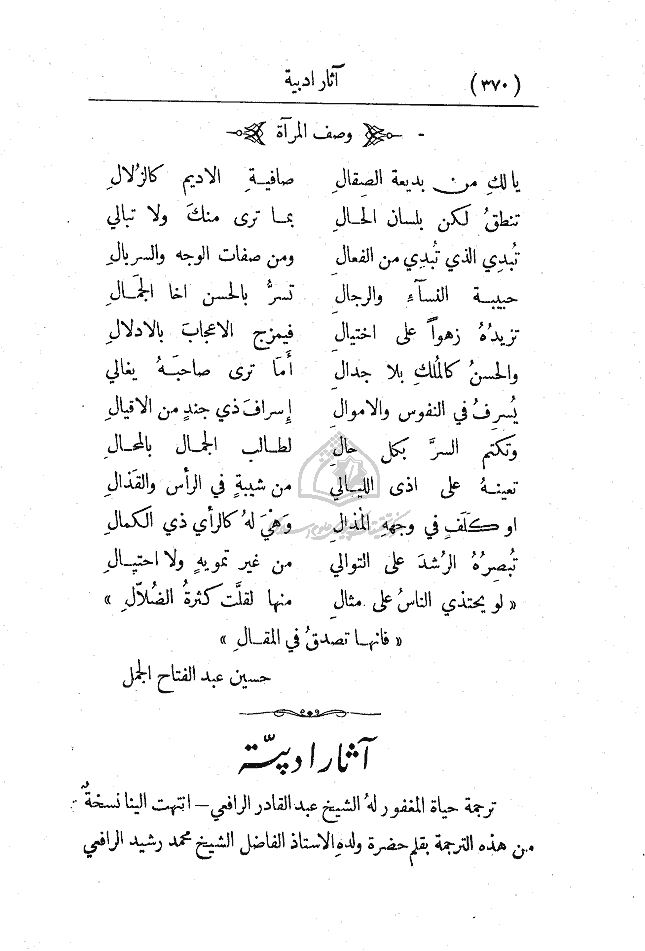 (٣٧٠) آثار ادبية
وصف المرآة
يا لكِ من بديعة الصِقالِ صافيةِ الاديم كالزُلالِ
تنطقُ لكن بلسان الحالِ بما ترى منكَ ولا تبالي
تُبدِي الذي تُبدِي من الفعالِ ومن صفات الوجه والسربالِ
حبيبة النسآءِ والرجالِ تسرُّ بالحسن اخا الجَمالِ
تزيدُهُ زهواً على اختيالِ فيمزج الاعجابَ بالادلالِ
والحسنُ كالمُلكِ بلا جدالِ أمَا ترى صاحبَهُ يغالي
يُسرِفُ في النفوس والاموالِ إسرافَ ذي جندٍ من الاقيالِ
وتكتم السرَّ بكل حالِ لطالب الجمال بالمحالِ
تعينهُ على اذى الليالي من شيبةٍ في الرأس والقَذالِ
او كَلَفٍ في وجههِ المُذالِ وَهْيَ لهُ كالرأي ذي الكمالِ
تُبصِرُهُ الرُشدَ على التوالي من غير تمويهٍ ولا احتيالِ
« لو يحتذي الناسُ على مثالِ منها لقلَّت كثرةُ الضُلاّلِ »
« فانها تصدقُ في المقالِ »
حسين عبد الفتاح الجمل
آثار ادبيّة
ترجمة حياة المغفور لهُ الشيخ عبد القادر الرافعي – انتهت الينا نسخةٌ
من هذه الترجمة بقلم حضرة ولدهِ الاستاذ الفاضل الشيخ محمد رشيد الرافعي